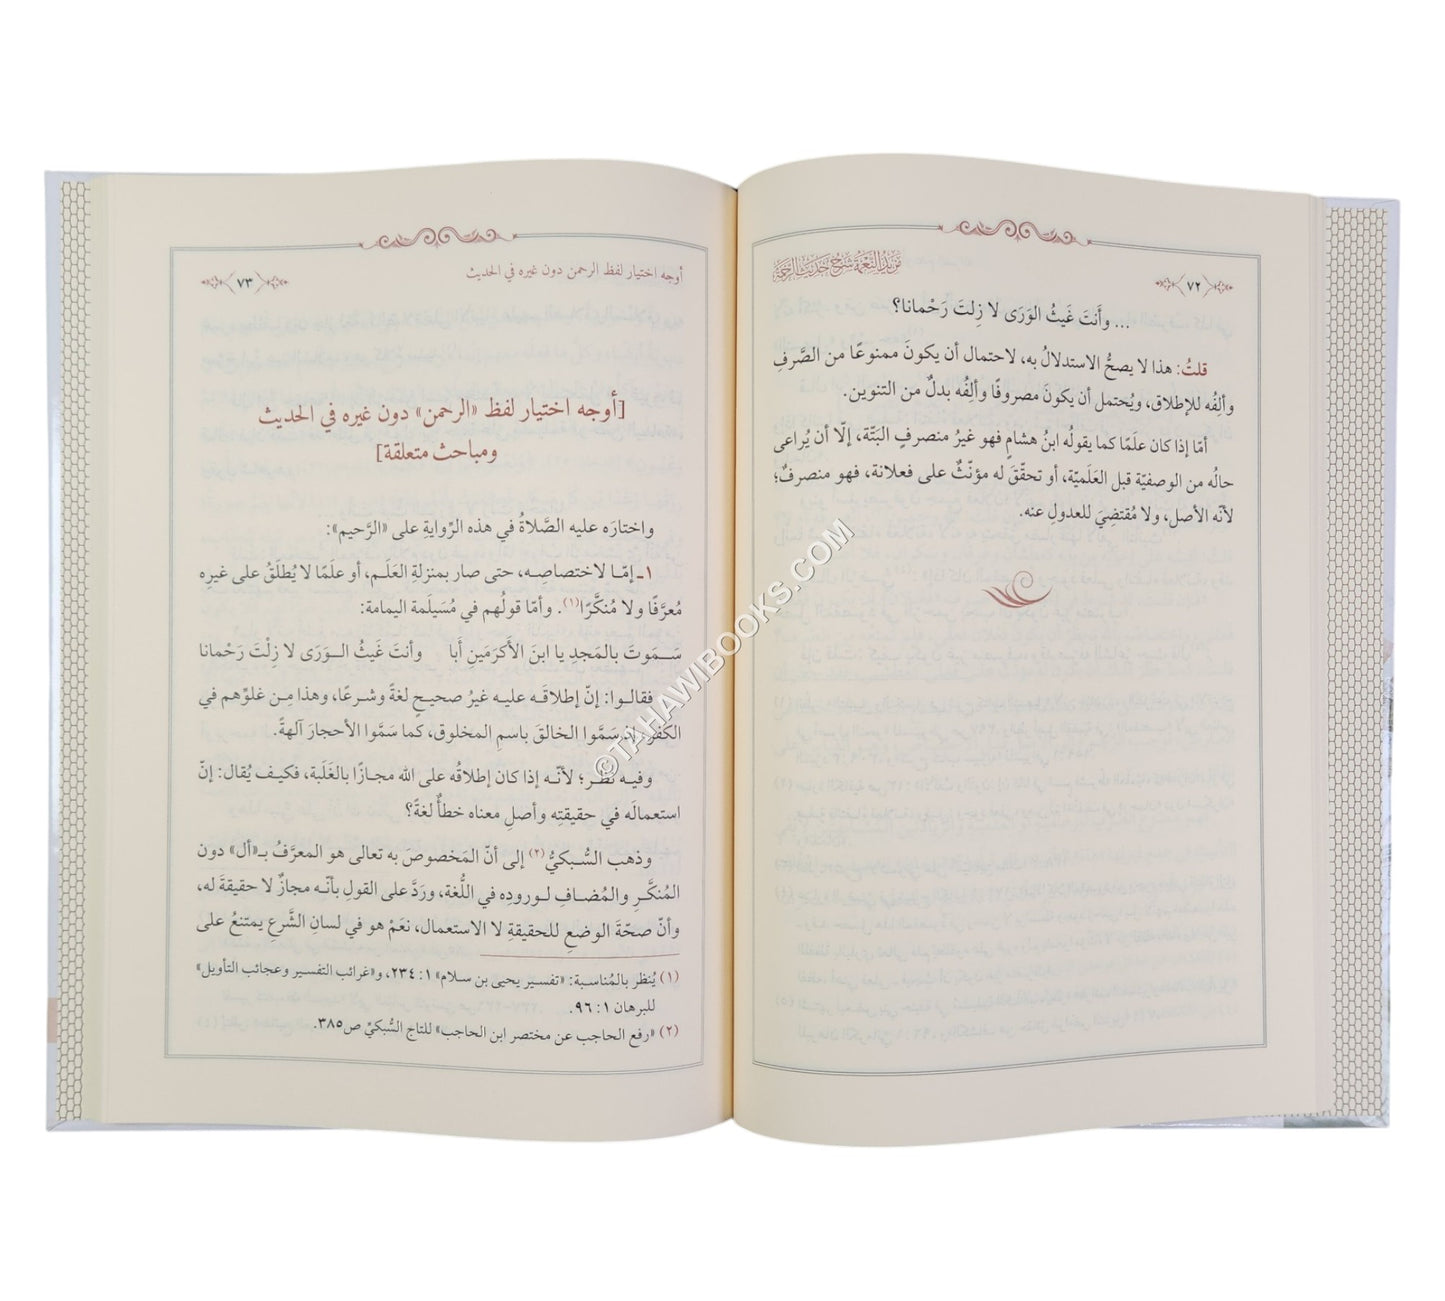 ٧٢
مزيد النعمة شرح حديث الرحمة
... وأَنتَ غَيثُ الوَرَى لا زِلتَ رَحْمانا؟
قلتُ: هذا لا يصحُّ الاستدلالُ به، لاحتمال أن يكونَ ممنوعًا من الصَّرفِ
وألِفُه للإطلاق، ويُحتمل أن يكونَ مصروفًا وألِفُه بدلٌ من التنوين.
أمّا إذا كان علَمًا كما يقولُه ابنُ هشامٍ فهو غيرُ منصرفٍ البَتّة، إلّا أن يُراعى
حالُه من الوصفيّة قبل العَلَميّة، أو تحقّقَ له مؤنّثٌ على فعلانة، فهو منصرفٌ؛
لأنّه الأصل، ولا مُقتضِيَ للعدولِ عنه.
أوجه اختيار لفظ الرحمن دون غيره في الحديث
٧٣
[أوجه اختيار لفظ «الرحمن» دون غيره في الحديث
ومباحث متعلقة]
واختارَه عليه الصَّلاةُ في هذه الرِّوايةِ على «الرَّحيم»:
١ـ إمّا لاختصاصِه، حتى صار بمنزلةِ العَلَم، أو علَمًا لا يُطلَقُ على غيرِه
مُعرَّفًا ولا مُنكَّرًا(١). وأمّا قولُهم في مُسَيلَمة اليمامة:
سَموتَ بالمَجدِ يا ابنَ الأَكرَمَينِ أَبا وأنتَ غَيثُ الوَرَى لا زِلْتَ رَحْمانا
فقالوا: إنّ إطلاقَه عليه غيرُ صحيحٍ لغةً وشرعًا، وهذا مِن غلوِّهم في
الكفر، إذ سَمَّوا الخالقَ باسمِ المخلوق، كما سَمَّوا الأحجارَ آلهةً.
وفيه نظَر؛ لأنّه إذا كان إطلاقُه على الله مجازًا بالغَلَبة، فكيف يُقال: إنّ
استعمالَه في حقيقتِه وأصلِ معناه خطأٌ لغةً؟
وذهب السُّبكيُّ(٢) إلى أنّ المَخصوصَ به تعالى هو المعرَّفُ بـ«أل» دون
المُنكَّرِ والمُضاف لورودِه في اللُّغة، ورَدَّ على القولِ بأنّه مجازٌ لا حقيقةَ له،
وأنّ صحّةَ الوضعِ للحقيقةِ لا الاستعمال، نعَمْ هو في لسانِ الشَّرعِ يمتنعُ على
(١) يُنظر بالمُناسبة: «تفسير يحيى بن سلام» ١: ٢٣٤، و«غرائب التفسير وعجائب التأويل»
للبرهان ١: ٩٦.
(٢) «رفع الحاجب عن مختصر ابن الحاجب» للتاج السُّبكيّ ص٣٨٥.
©TAHAWIBOOKS.COM